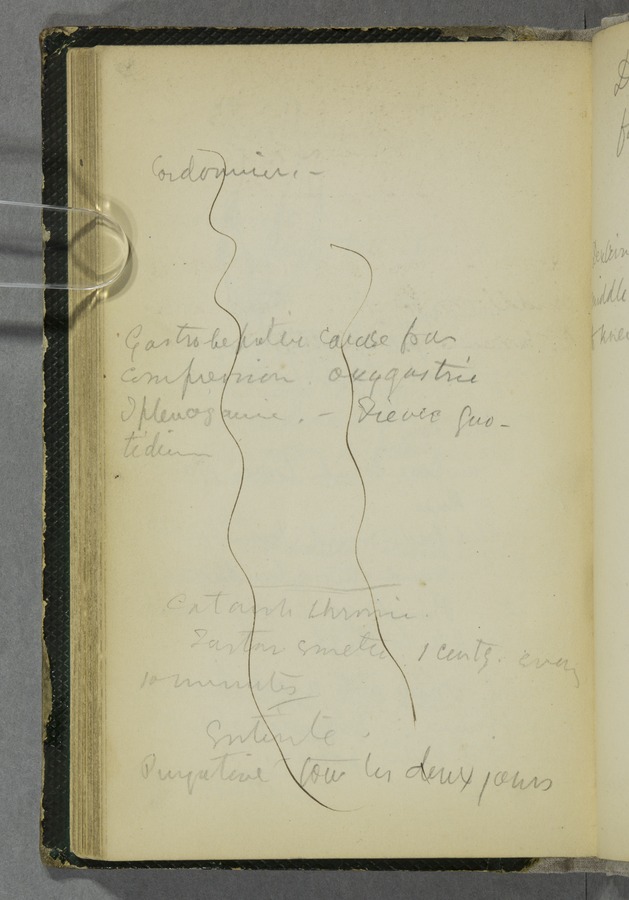 Cordonnier. –
Gastrohepatic cause par
compression. oxygastrie
Splenogamie. – Fievre quo-
tidien
Catarrh chronic.
Tartar emetic 1 centg. every
10 minutes
Enterite
Purgative tous les deux jours
D
middle